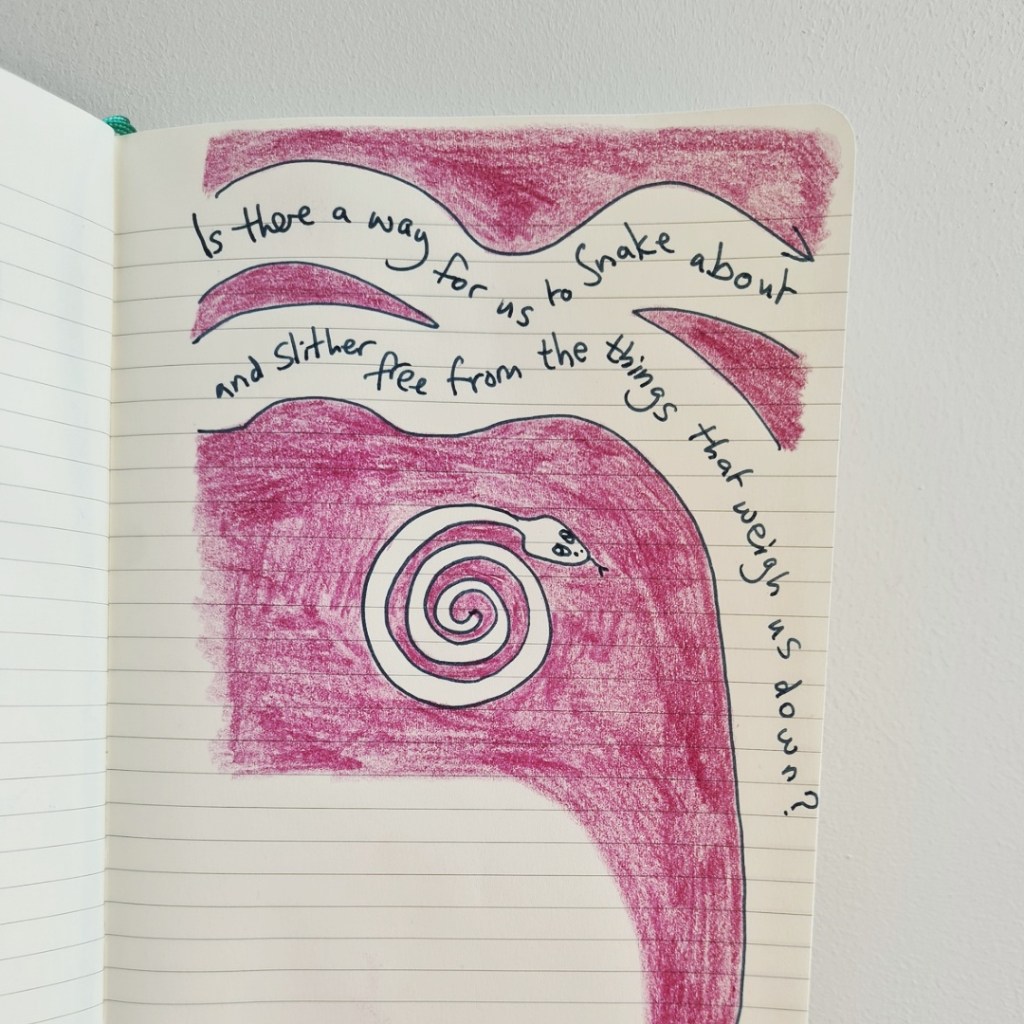 Is there a way for us to Snake about
and Slither free from the things that weigh us down?